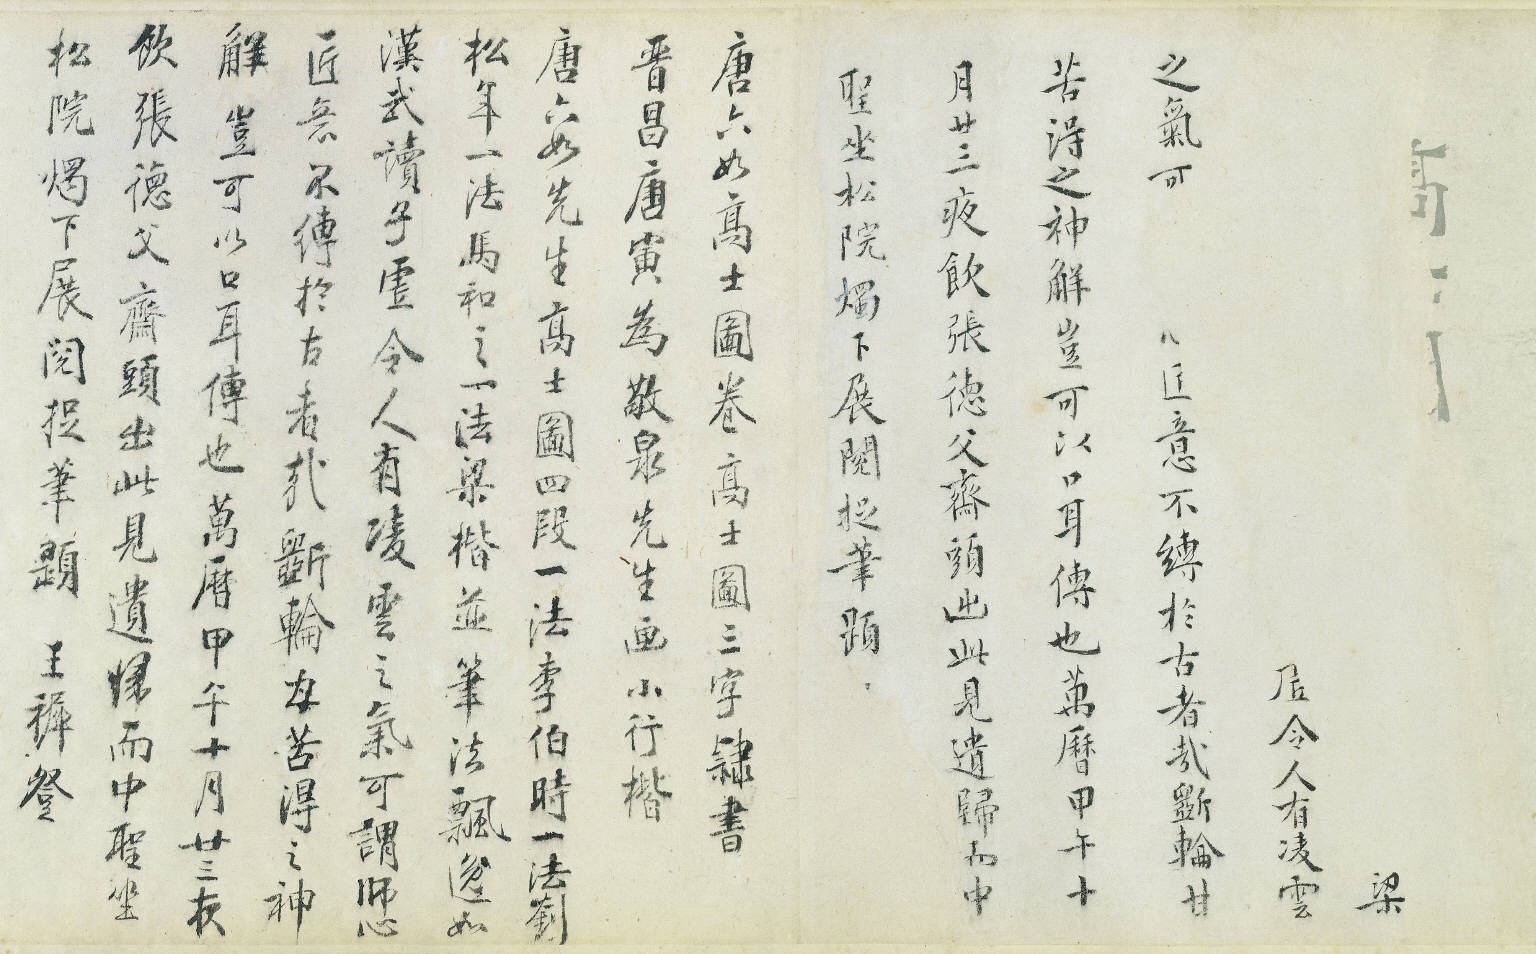 梁
居令人有凌雲
之氣可 匠意不縛於古者哉斲輪甘
苦得之神解豈可以口耳傳也萬曆甲午十
月廿三夜飲張德父齋頭出此見遺歸而中
聖坐松院燭下展閱捉筆題
唐六如高士圖卷高士圖三字隸書
晉昌唐寅為敬泉先生画小行楷
唐六如先生高士圖四段一法李伯時一法劉
松年一法馬和之一法梁楷並筆法飄逸如
漢武讀子虛令人有凌雲之氣可謂師心
匠意不縛於古者哉斲輪甘苦得之神
解豈可以口耳傳也萬曆甲午十月廿三夜
飲張德父齋頭出此見遺歸而中聖坐
松院燭下展閱捉筆題 王穉登